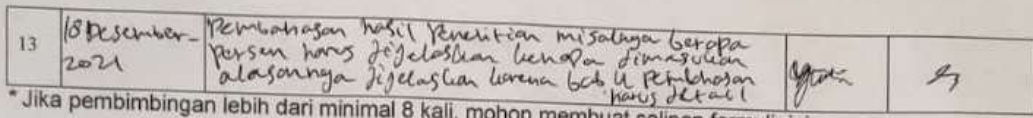 13
18 Desember-
2021
Pembahasan hasil Penelitian misalnya berapa
persen harus dijelaskan kenapa dimasukan
alasannya dijelaskan karena bab 4 Pembahasan
harus detail
* Jika pembimbingan lebih dari minimal 8 kali, mohon membuat salinan